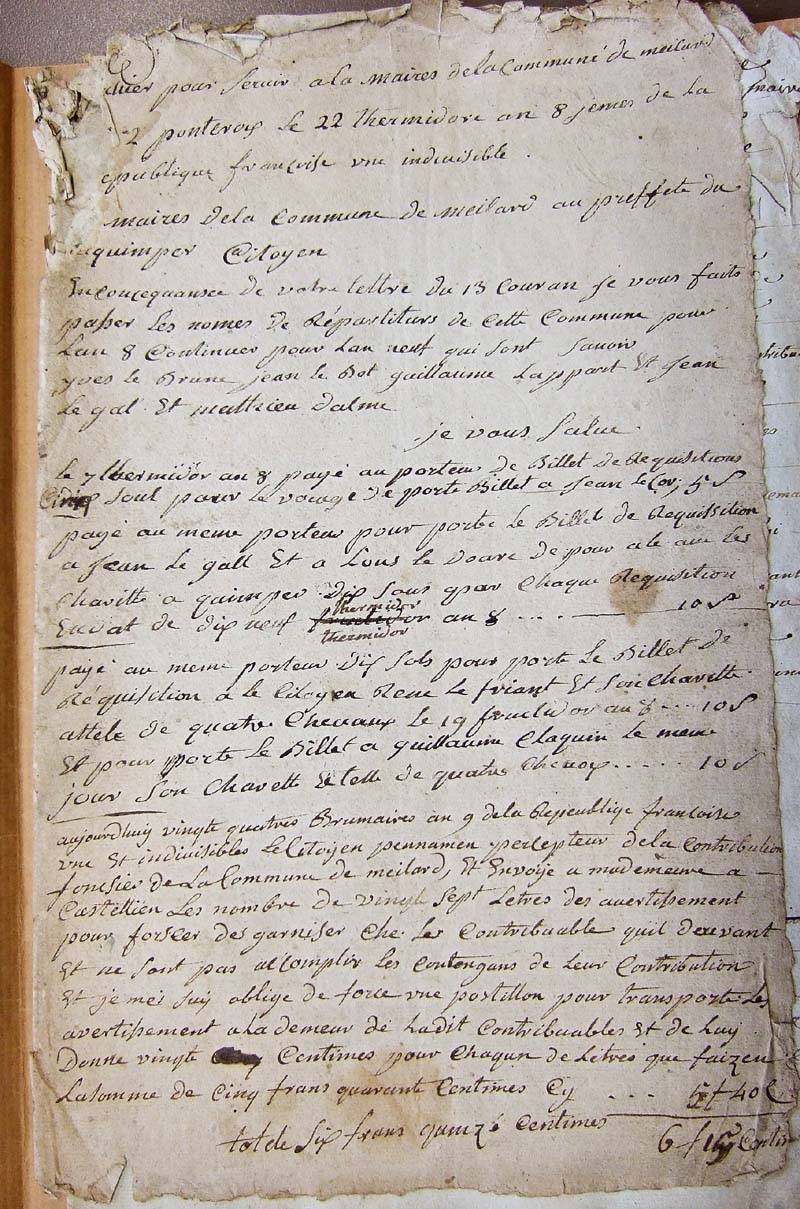 hier pour servir a la maires de la Communé de meilard
2 ponteroix le 22 thermidore an 8 jemes de la
epublique françoise vne indiuisible.
maires de la Commune de meilard au preffete du
quimper Citoyen
En Concequansce de votre lettre du 13 Couran je vous faits
passer les nomes de Répartiturs de Cette Commune pour
Lan 8 Continuer pour Lan neuf qui sont Savoir
yves le Brune jean le Bot guillaume Lappart Et jean
Le gal Et mathieu dalme
je vous Salue
le 7 thermidor an 8 payé au porteur de Billet de Requisitions
Cinq Sout pour le voiage de porte Billet a jean le Cor; 5 S
payé au meme porteur pour porte le Billet de Requisition
a jean Le gall Et a Louis le Doare de pour ale aue Les
Charitte a quimper Dix Sous par Chaque Requisition
En dat de dix neuf thermidor an 8 .... 10 S
thermidor
payé au meme porteur Dix Sols pour porte Le Billet de
Réquisition a le Citoyen Rene Le friant Et Son Charette
attele de quatre Cheuaux Le 19 fructidor an 8 ... 10 S
Et pour porte Le Billet a guillaume Claquin Le meme
jour Son Charette de quatre Cheuox ..... 10 S
aujourdhuy vingte quatres Brumaires an 9 de la Republige françoise
vne Et indiuisibles Le Citoyen pennamen percepteur de la Contribution
fonsier de La Commune de meilard, Et Envoje a ma demeure a
Castellien Les nombre de vingt Sept Letres des auertissement
pour forscer des garniser Che Les Contribuable quil devant
Et ne Sont pas accomplir Les Contengans de Leur Contribution
Et je mei Suis oblige de force vne postillon pour transporte Les
avertissement a la demeur de Ladit Contribuables Et de Luy
Donne vingte Centimes pour Chaqun de Letres que faizen
La Somme de Cinq frans quarante Centimes Cy ... 5 f 40 C
totale Six frans quinzé Centimes 6 f 15 Centim